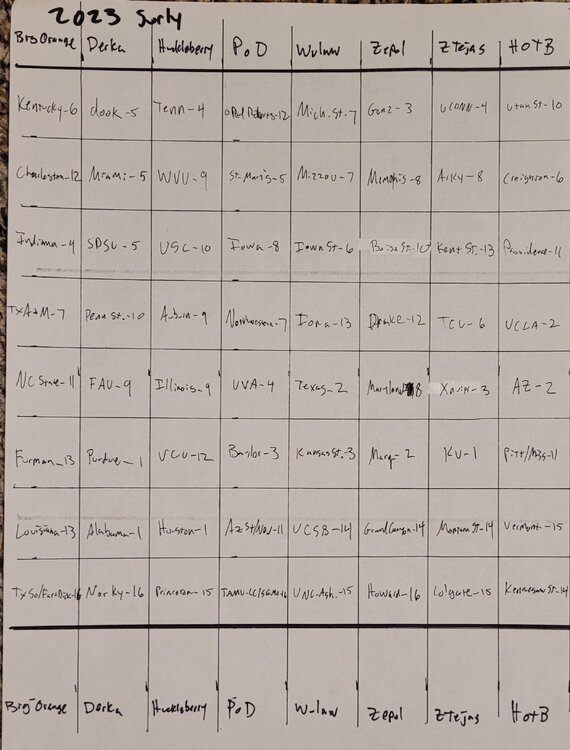 2023 Sorty
Big Orange Derka Huckleberry PoD Wulaw Zepol ZTejas HOTB
Kentucky-6 dook-5 Tenn-4 oral Roberts-12 Mich. St.-7 Gonz-3 UCONN-4 Utah St-10
Charleston-12 Miami-5 WVU-9 St. Mary's-5 Mizzou-7 Memphis-8 Arky-8 Creighton-6
Indiana-4 SDSU-5 USC-10 Iowa-8 Iowa St-6 Boise St-10 Kent St.-13 Providence-11
TxA+M-7 Penn St.-10 Auburn-9 Northwestern-7 Iona-13 Drake-12 TCU-6 UCLA-2
NC State-11 FAU-9 Illinois-9 UVA-4 Texas-2 Maryland 8 Xavier-3 AZ-2
Furman-13 Purdue-1 VCU-12 Baylor-3 Kansas St.-3 Marq-2 KU-1 Pitt/MSS-11
Louisiana-13 Alabama-1 Houston-1 AZ St/Nev-11 UCSB-14 Grand Canyon-14 Montana St-14 Vermont-15
TxSo/FairDick-16 Nor Ky-16 Princeton-15 TAMU-CC/SEMO-16 UNC-Ash.-15 Howard-16 Colgate-15 Kennesaw St-14
Big Orange Derka Huckleberry PoD W-law Zepol ZTejas HOTB